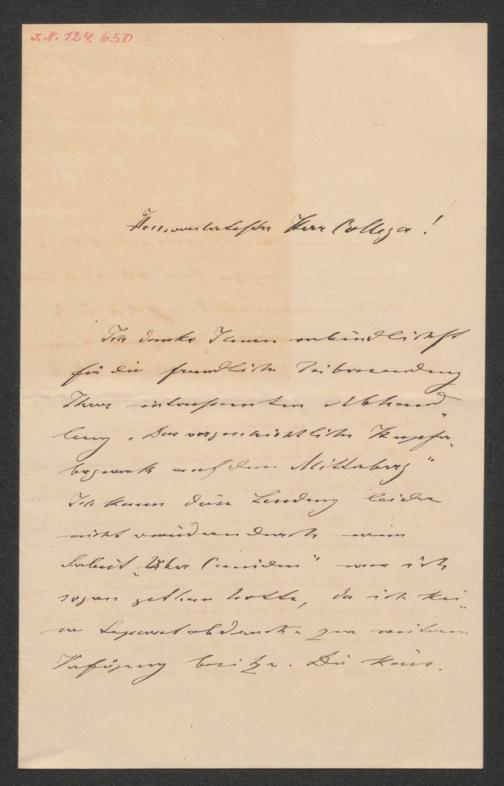 J.N. 124.650
Herr College!
Ich danke Ihnen verbindlichst
für die freundliche Zusendung
Ihrer interessanten Abhand-
lung „Das vorgeschichtliche Kupfer-
bergwerk auf dem Mitterberg"
Ich kann diese Sendung leider
nicht durch meine
Arbeit „Über " was ich
gethan hätte, da ich kei-
ne Separatabdrucke zu meiner
Verfügung besitze. Die